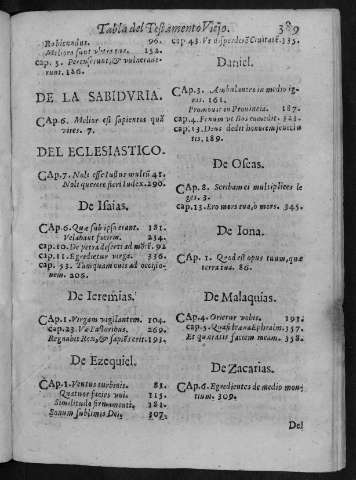 Tabla del Testamento Viejo. 389
Rubicundus. 96.
Meliora sunt vbera tua. 152.
cap. 5. Percuserunt, & vulnerauerunt. 126.
DE LA SABIDVRIA.
CAp. 6. Melior est sapientia quã
vires. 7.
DEL ECLESIASTICO.
CAp. 7. Noli esse iudus multũ 41.
Noli querere fieri Iudex. 290.
De Isaias.
CAp. 6. Quæ sub ipso erant. 181.
Velabant faciem. 234.
cap. 10. De petra deserti ad mõtẽ. 92
cap. 11. Egredietur virga. 336.
cap. 53. Tamquam ouis ad occisio-
nem. 206.
De Ieremias.
CAp. 1. Virgam vigilantem. 104.
cap. 23. Væ Pastoribus. 269.
Regnabit Rex, & sapiẽs erit. 193.
De Ezequiel.
CAp. 1. Ventus turbinis. 81.
Quatuor facies vni. 115.
Similitudo firmamenti. 181.
Sonum sublimis Dei. 307.
cap 43. Vt disperderẽ Ciuitatẽ. 135.
Daniel.
CAp. 3. Ambulantes in medio ig-
nis. 161.
Promouit in Prouincia. 187.
cap. 4. Fenum vt bos comedit.
cap. 13. Deus dedit honorem
tis. 189.
De Oseas.
CAp. 8. Scribam ei multiplices le
ges. 3.
cap. 13. Ero mors tua, ò mors. 345.
De Iona.
CAp. 1. Quod est opus tuum, quæ
terra tua. 86.
De Malaquias.
CAp. 4. Orietur vobis. 193.
cap. 5. Quasi trana Ephraim. 357.
Et quærasti faciem meam. 358.
De Zacarias.
CAp. 6. Egredientes de medio mon-
tium. 309.
Del